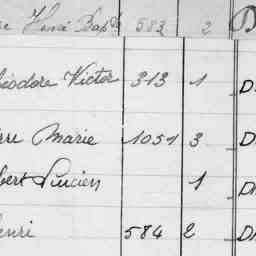 re Henri Bapte 583 2 D
éodore Victor 313 1 D
rre Marie 1051 3 D
bert Lucien 1 D
enri 584 2 D